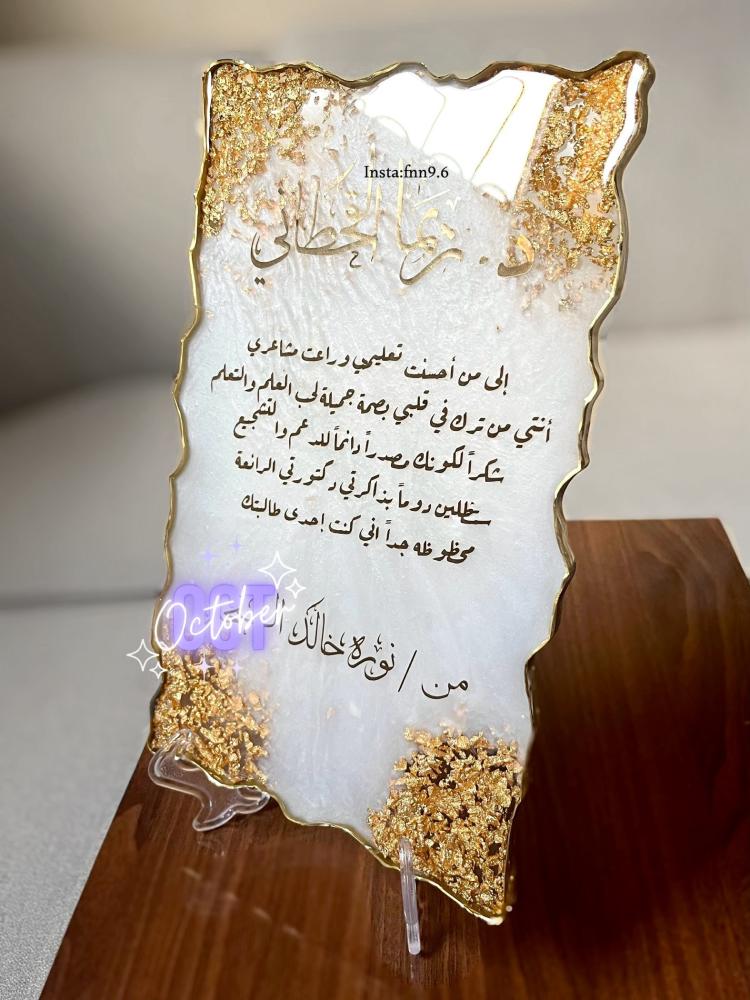 Insta:fnn9.6
د. ريما القحطاني
إلى من أحسنت تعليمي وراعت مشاعري
أنتي من ترك في قلبي بصمة جميلة لحب العلم والتعلم
شكراً لكونك مصدراً دائماً للدعم والتشجيع
ستظلين دوماً بذاكرتي دكتورتي الرائعة
محظوظه جداً اني كنت إحدى طالبتك
من / نوره خالد
OCT
October